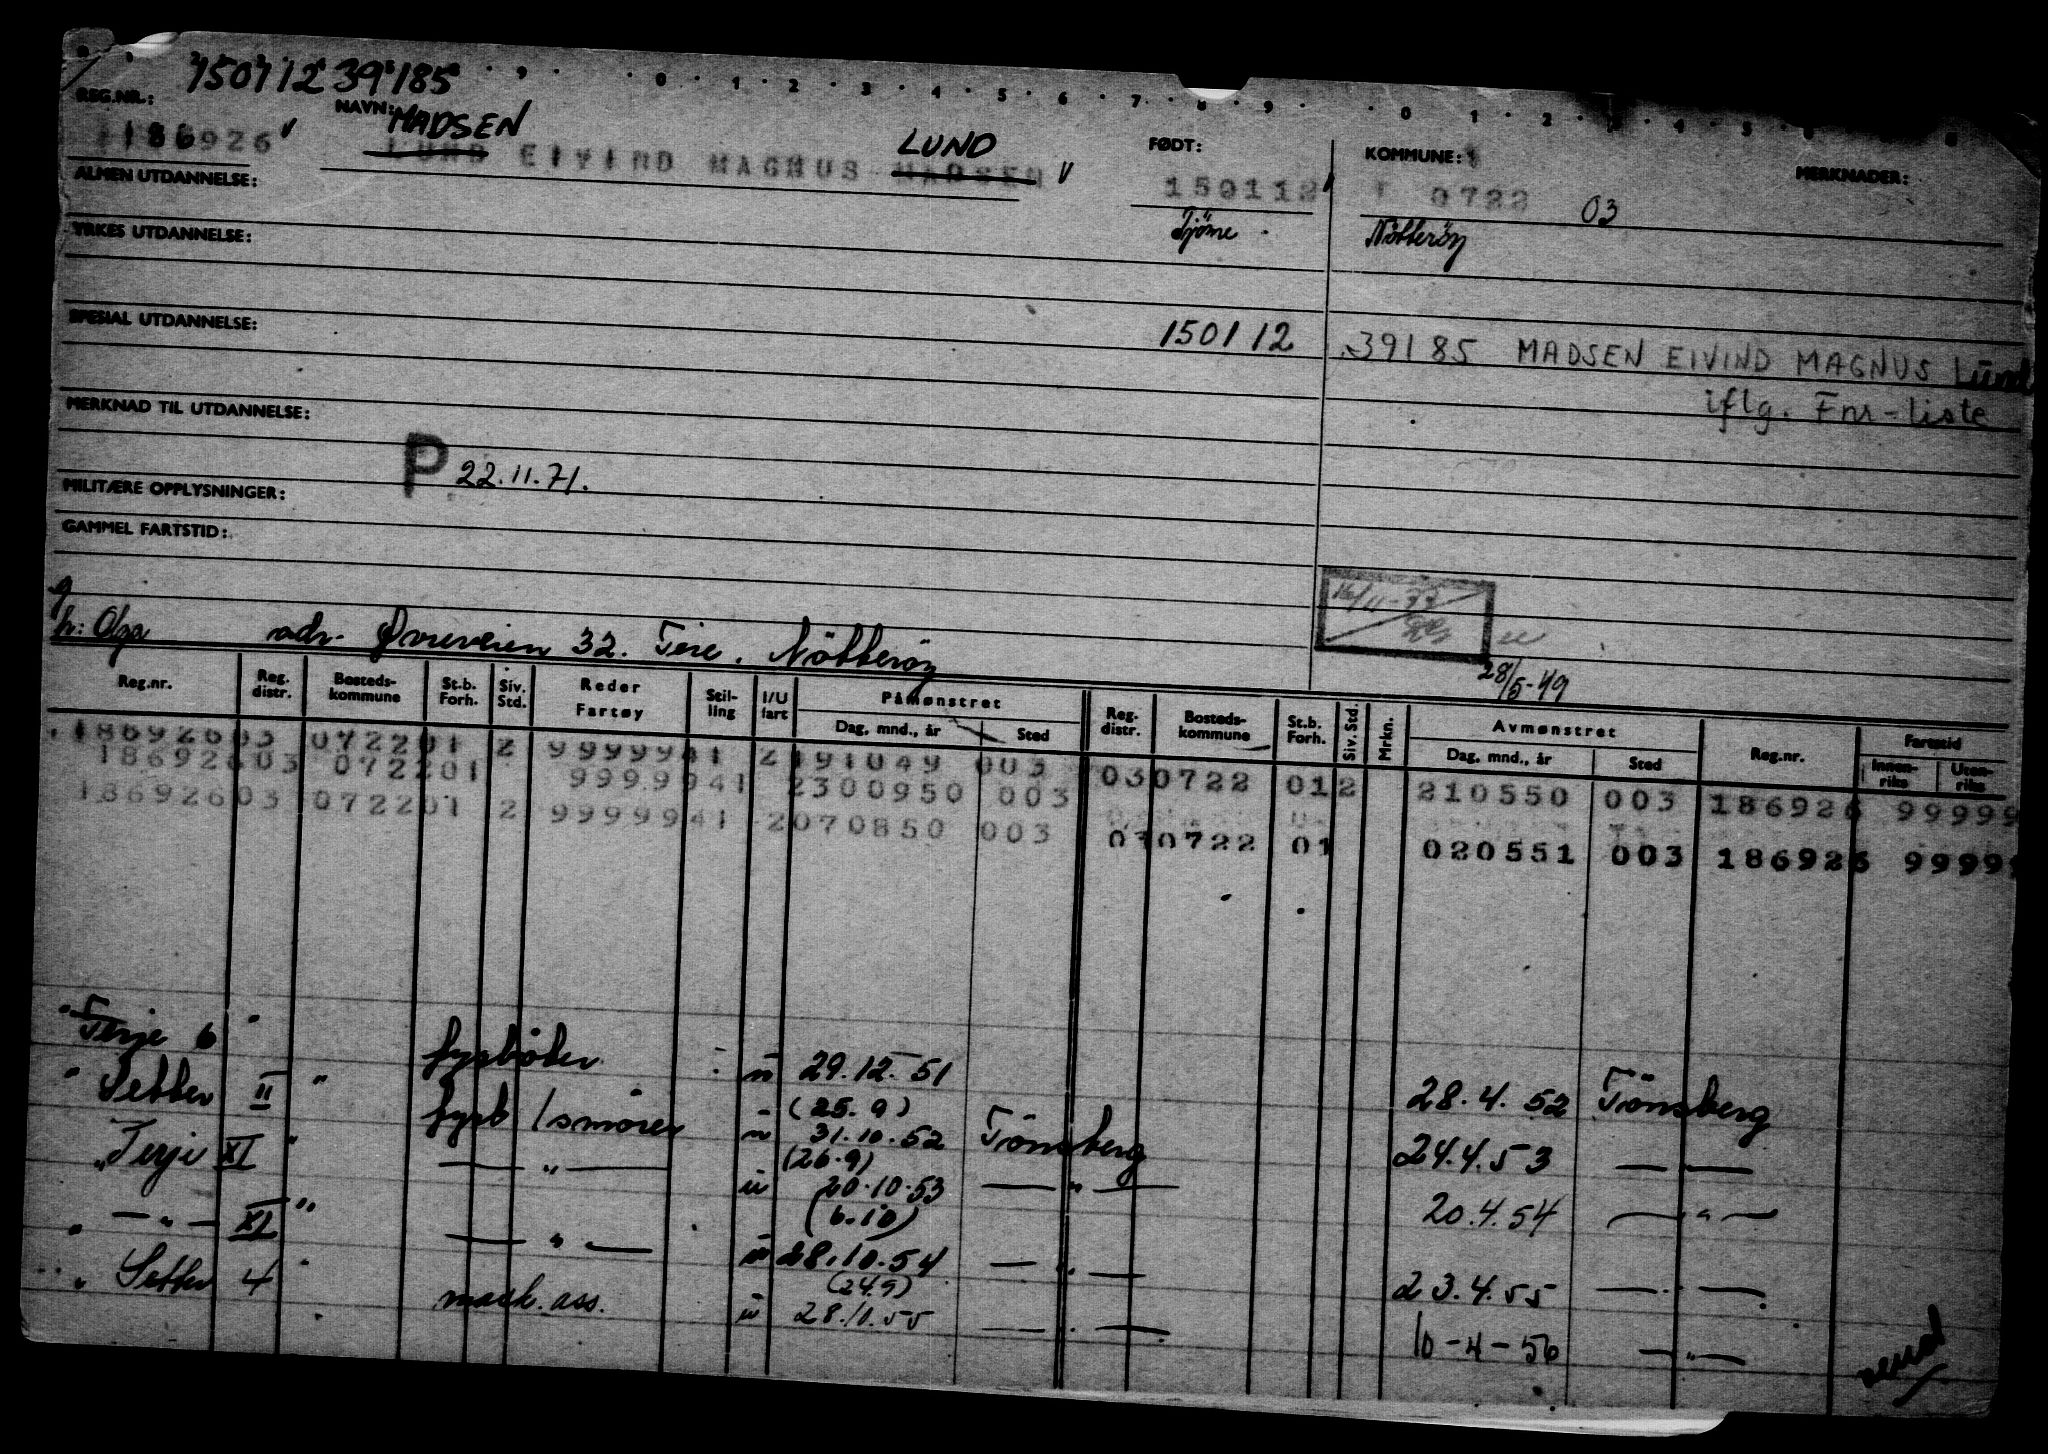 150112 39185
REG.NR.: NAVN: MADSEN LUND FØDT: KOMMUNE: MERKNADER:
186926 LUND EIVIND MAGNUS MADSEN 150112 0722 03
Tjöme Nötteröy
ALMEN UTDANNELSE:
YRKES UTDANNELSE:
SPESIAL UTDANNELSE: 150112 39185 MADSEN EIVIND MAGNUS Lund
iflg. Fnr-liste
MERKNAD TIL UTDANNELSE:
P 22.11.71.
MILITÆRE OPPLYSNINGER:
GAMMEL FARTSTID:
g
h: Olga adr. Øvreveien 32. Teie. Nötteröy
28/5-49
Reg.nr. Reg. distr. Bosteds-kommune St.b. Forh. Siv. Std. Reder Fartøy Stil-ling I/U fart Påmønstret Dag, mnd., år Sted Reg. distr. Bosteds-kommune St.b. Forh. Siv. Std. Mrkn. Avmønstret Dag, mnd., år Sted Reg.nr. Fartstid Innen-riks Uten-riks
186926 03 0722 01 2 9999941 2 191049 003 03 0722 01 2 210550 003 186926 99999
186926 03 0722 01 9999941 2300950 003
186926 03 0722 01 2 9999941 2 070850 003 03 0722 01 020551 003 186926 9999
"Terje 6" fyrböter u 29.12.51 28.4.52 Tönsberg
(25.9)
"Setter II" fyrb/smörer u 31.10.52 Tönsberg 24.4.53 — " —
(26.9)
"Terje XI" — " — u 20.10.53 — " — 20.4.54 — " —
(6.10)
" — " — XI" — " — u 28.10.54 — " — 23.4.55 — " —
(24.9)
"Setter 4" mask. ass. u 28.11.55 — " — 10-4-56 — " —
vend